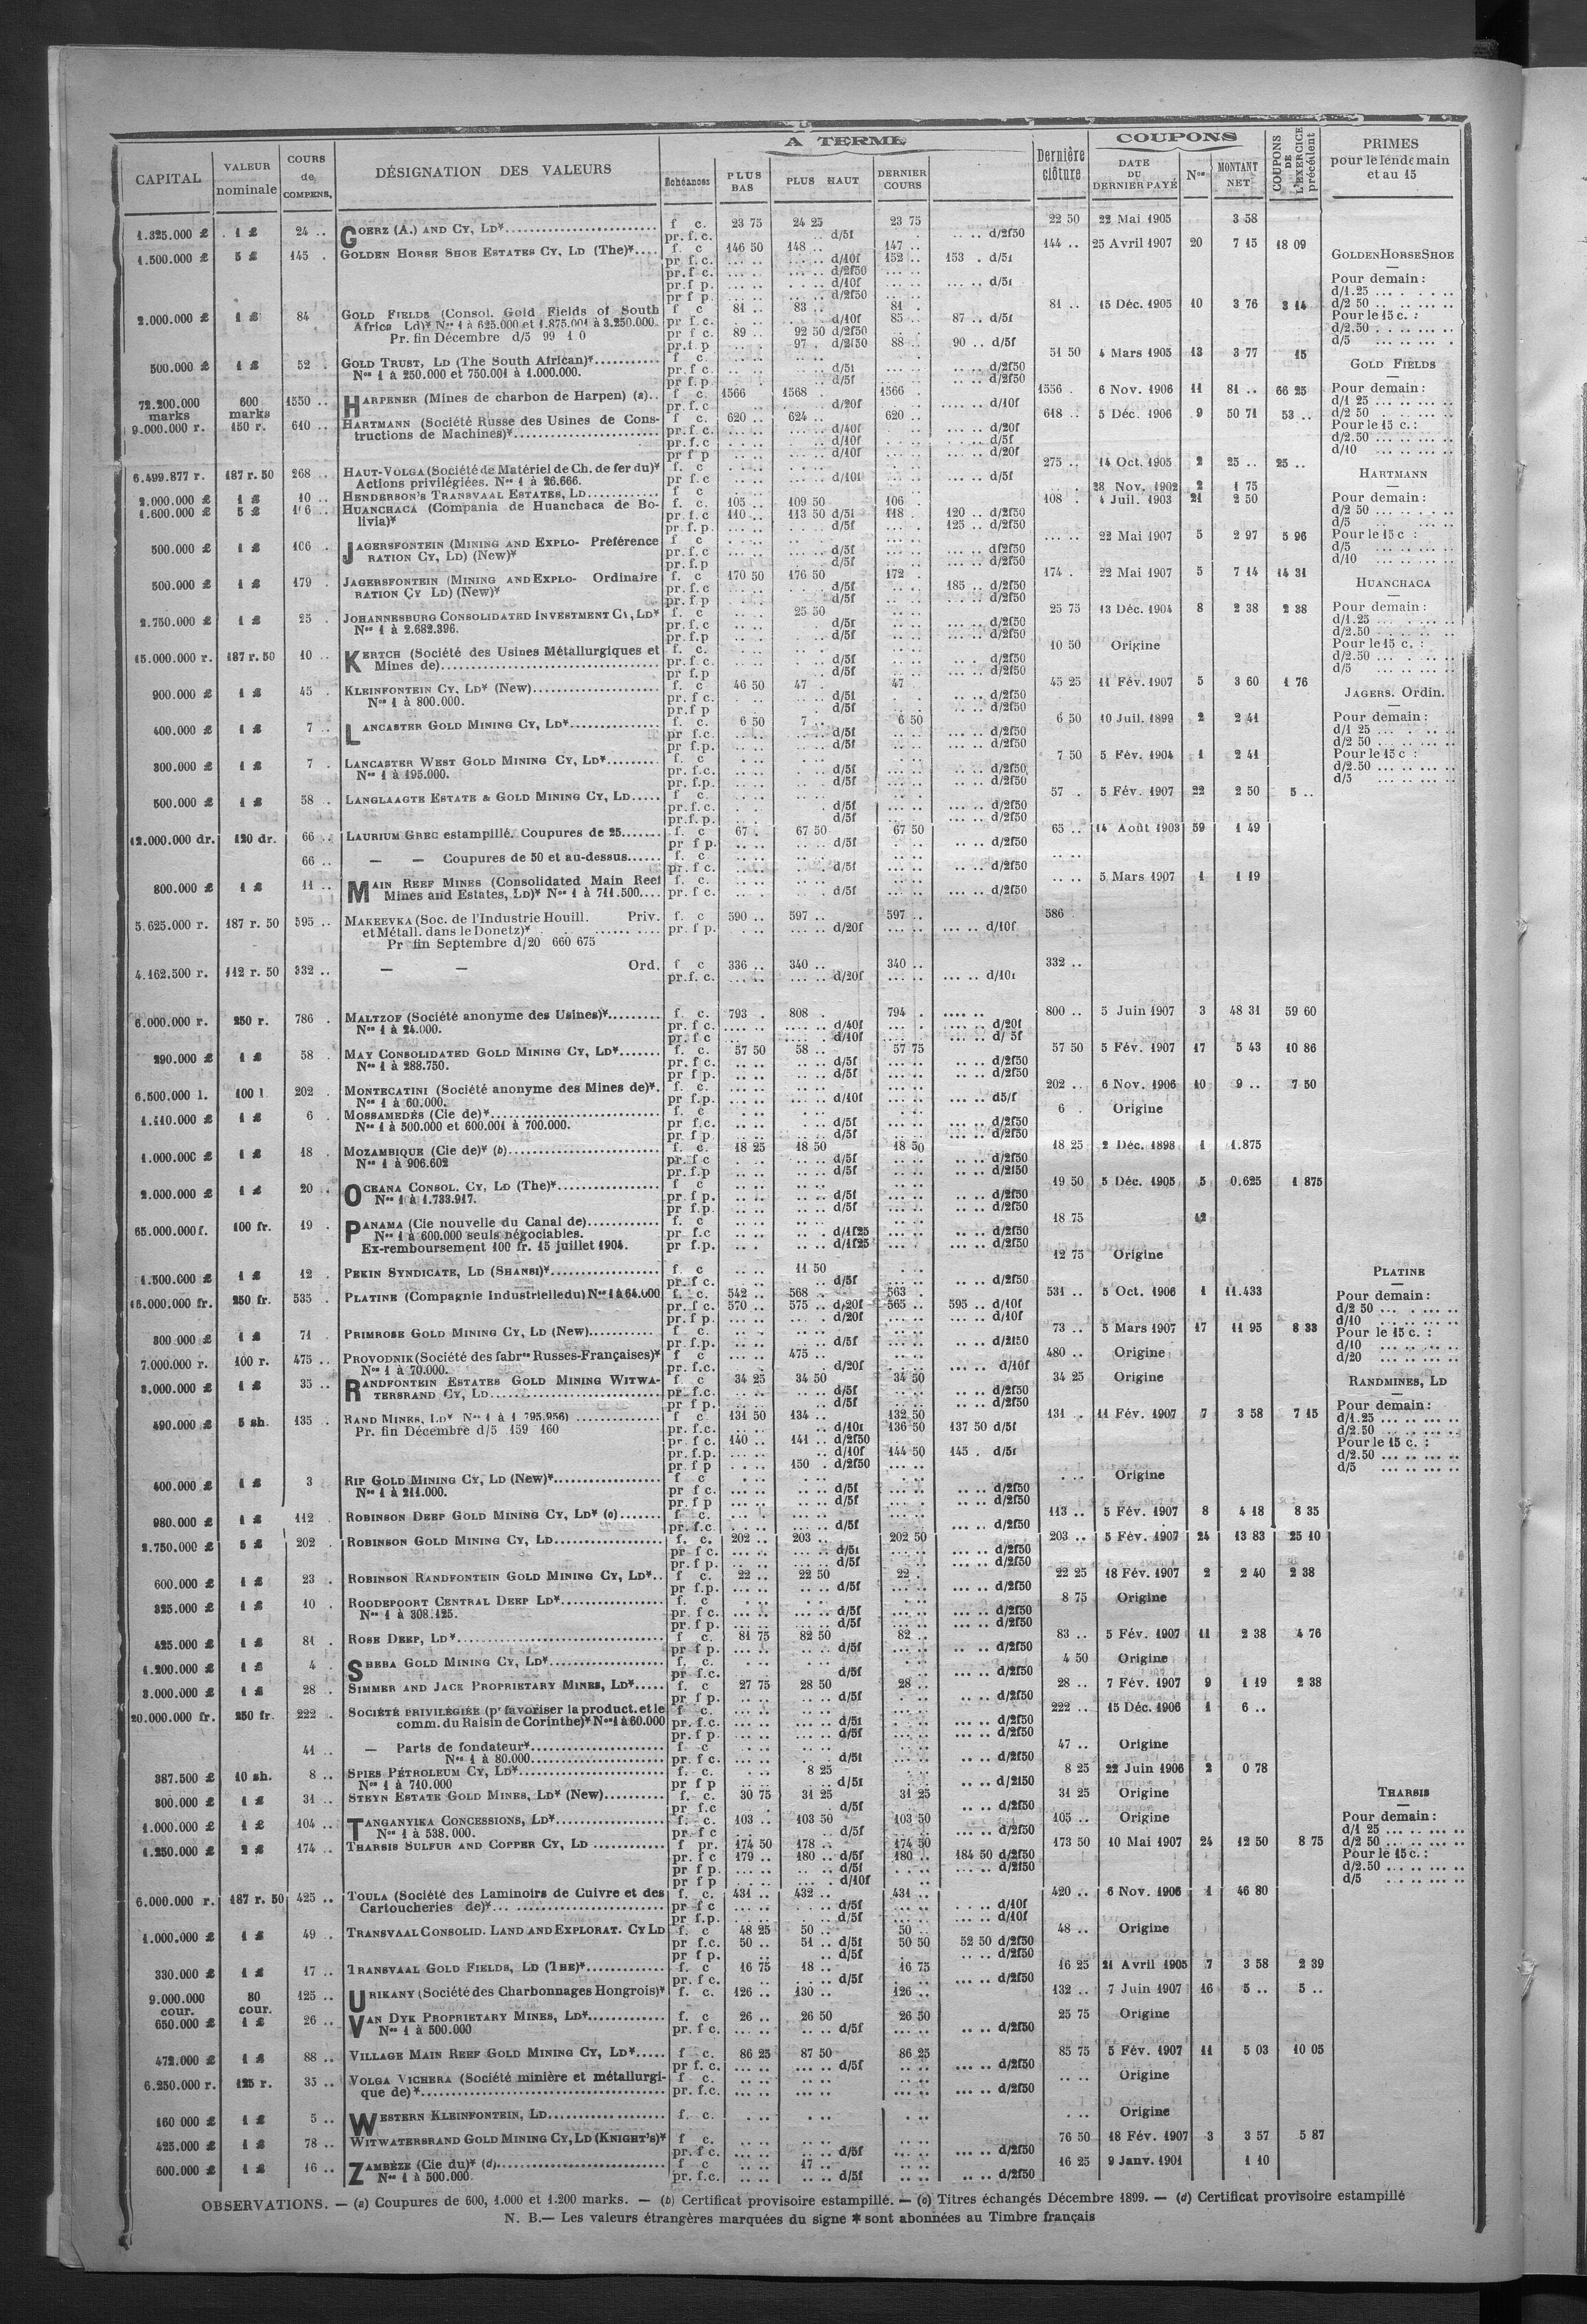 A TERME
COUPONS
CAPITAL
VALEUR nominale
COURS de COMPENS.
DÉSIGNATION DES VALEURS
Échéances
PLUS BAS
PLUS HAUT
DERNIER COURS
Dernière clôture
DATE DU DERNIER PAYÉ
Nos
MONTANT NET
COUPONS DE L'EXERCICE précédent
PRIMES pour le lendemain et au 15
1.325.000 £ 1 £ 24 .. GOERZ (A.) AND CY, LD* f c. 23 75 24 25 23 75 22 50 22 Mai 1905 3 58
pr. f. c. d/5f d/2f50
1.500.000 £ 5 £ 145 . GOLDEN HORSE SHOE ESTATES CY, LD (THE)* f. c 146 50 148 .. 147 .. 144 .. 25 Avril 1907 20 7 15 18 09
pr f. c. d/10f 152 .. 153 . d/5f
pr. f c. d/2f50
pr. f p. d/10f d/5f
pr f p. d/2f50
2.000.000 £ 1 £ 84 GOLD FIELDS (Consol. Gold Fields of South f c 81 .. 83 .. 81 . 81 .. 15 Déc. 1905 10 3 76 3 14
Africa Ld)* Nos 1 à 625.000 et 1.875.001 à 3.250.000 pr f. c. d/10f 85 .. 87 .. d/5f
Pr. fin Décembre d/5 99 1 0 pr f c. 89 .. 92 50 d/2f50
pr. f. p 97 . d/2f50 88 .. 90 .. d/5f
500.000 £ 1 £ 52 . GOLD TRUST, LD (The South African)* f c. 51 50 4 Mars 1905 13 3 77 15
Nos 1 à 250.000 et 750.001 à 1.000.000. pr f c. d/5f d/2f50
pr f. p. d/5f d/2f50
72.200.000 marks 600 marks 1550 .. HARPENER (Mines de charbon de Harpen) (a).. f. c. 1566 1568 . 1566 . 1556 . 6 Nov. 1906 11 81 .. 66 25
pr. f. c d/20f d/10f
9.000.000 r. 150 r. 610 .. HARTMANN (Société Russe des Usines de Cons- f. c. 620 .. 624 .. 620 .. 618 .. 5 Déc. 1906 9 50 71 53 ..
tructions de Machines)* pr. f. c. d/40f d/20f
pr. f c d/10f d/5f
pr f p d/10f d/20f
6.499.877 r. 187 r. 50 268 .. HAUT-VOLGA (Société de Matériel de Ch. de fer du)* f. c 275 .. 14 Oct. 1905 2 25 .. 25 ..
Actions privilégiées. Nos 1 à 26.666. pr. f c d/10f d/5f
2.000.000 £ 1 £ 10 .. HENDERSON'S TRANSVAAL ESTATES, LD f c 28 Nov. 1902 2 1 75
1.600.000 £ 5 £ HUANCHACA (Compania de Huanchaca de Bo- f. c. 105 .. 109 50 106 108 . 4 Juil. 1903 21 2 50
livia)* pr. f c 110 .. 113 50 d/5f 118 . 120 .. d/2f50
pr f. p. d/5f 125 .. d/2f50
500.000 £ 1 £ 106 . JAGERSFONTEIN (MINING AND EXPLO- Préférence f c 22 Mai 1907 5 2 97 5 96
RATION CY, LD) (New)* pr. f. c d/5f d/2f50
pr. f. p d/5f d/2f50
500.000 £ 1 £ 179 . JAGERSFONTEIN (MINING AND EXPLO- Ordinaire f. c 170 50 176 50 172 . 174 . 22 Mai 1907 5 7 14 14 31
RATION CY LD) (New)* pr. f c d/5f 185 .. d/2f50
pr. f p d/5f d/2f50
2.750.000 £ 1 £ 25 . JOHANNESBURG CONSOLIDATED INVESTMENT CY, LD* f. c 25 50 25 75 13 Déc. 1904 8 2 38 2 38
Nos 1 à 2.682.396. pr. f. c d/5f d/2f50
pr. f. p d/5f d/2f50
15.000.000 r. 187 r. 50 10 .. KERTCH (Société des Usines Métallurgiques et f. c. 10 50 Origine
Mines de) pr. f. c. d/5f d/2f50
pr. f. p d/5f d/2f50
900.000 £ 1 £ 45 . KLEINFONTEIN CY, LD* (New) f. c 46 50 47 . 47 45 25 11 Fév. 1907 5 3 60 1 76
Nos 1 à 800.000. pr. f c. d/5f d/2f50
pr. f p d/5f d/2f50
400.000 £ 1 £ 7 .. LANCASTER GOLD MINING CY, LD* f. c. 6 50 7 .. 6 50 6 50 10 Juil. 1899 2 2 41
pr f. c. d/5f d/2f50
pr f. p. d/5f d/2f50
300.000 £ 1 £ 7 . LANCASTER WEST GOLD MINING CY, LD* f. c 7 50 5 Fév. 1904 1 2 41
Nos 1 à 195.000. pr. f. c. d/5f d/2f50
pr. f. p. d/5f d/2f50
500.000 £ 1 £ 58 .. LANGLAAGTE ESTATE & GOLD MINING CY, LD f c. 57 . 5 Fév. 1907 22 2 50 5 ..
pr. f. c. d/5f d/2f50
pr. f. p. d/5f d/2f50
12.000.000 dr. 120 dr. 66 .. LAURIUM GREC estampillé. Coupures de 25 f. c 67 . 67 50 67 50 65 .. 14 Août 1903 59 1 49
pr f p. d/5f d/2f50
66 .. — — Coupures de 50 et au-dessus f. c
pr. f c. d/5f d/2f50
800.000 £ 1 £ 11 .. MAIN REEF MINES (Consolidated Main Reef f. c. 5 Mars 1907 1 1 19
Mines and Estates, LD)* Nos 1 à 711.500 pr. f c. d/5f d/2f50
5.625.000 r. 187 r. 50 595 .. MAKEEVKA (Soc. de l'Industrie Houill. Priv. f. c 590 .. 597 .. 597 .. 586
et Métall. dans le Donetz)* pr. f p. d/20f d/10f
Pr fin Septembre d/20 660 675
4.162.500 r. 112 r. 50 332 .. — — Ord. f c 336 .. 340 .. 340 .. 332 ..
pr. f. c. d/20f d/10f
6.000.000 r. 250 r. 786 . MALTZOF (Société anonyme des Usines)* f. c. 793 . 808 . 794 . 800 .. 5 Juin 1907 3 48 31 59 60
Nos 1 à 24.000. pr. f c. d/40f d/20f
pr. f c d/10f d/ 5f
290.000 £ 1 £ 58 . MAY CONSOLIDATED GOLD MINING CY, LD* f. c. 57 50 58 .. 57 75 57 50 5 Fév. 1907 17 5 43 10 86
Nos 1 à 288.750. pr. f c. d/5f d/2f50
pr f p. d/5f d/2f50
6.500.000 l. 100 l 202 . MONTECATINI (Société anonyme des Mines de)*. f. c. 202 .. 6 Nov. 1906 10 9 .. 7 50
Nos 1 à 60.000. pr f. p. d/10f d5/f
1.410.000 £ 1 £ 6 . MOSSAMEDÈS (Cie de)* f. c 6 . Origine
Nos 1 à 500.000 et 600.001 à 700.000. pr f. c. d/5f d/2f50
pr. f p. d/5f d/2f50
1.000.000 £ 1 £ 18 . MOZAMBIQUE (Cie de)* (b) f. c. 18 25 18 50 18 50 18 25 2 Déc. 1898 1 1.875
Nos 1 à 906.602 pr. f c d/5f d/2f50
pr. f. p d/5f d/2f50
2.000.000 £ 1 £ 20 . OCEANA CONSOL. CY, LD (The)* f c 19 50 5 Déc. 1905 5 0.625 1 875
Nos 1 à 1.733.917. pr f p. d/5f d/2f50
pr f. p. d/5f d/2f50
65.000.000 f. 100 fr. 19 . PANAMA (Cie nouvelle du Canal de) f. c 18 75 12
Nos 1 à 600.000 seuls négociables. pr f. c d/1f25 d/2f50
Ex-remboursement 100 fr. 15 juillet 1904. pr f. p. d/1f25 d/2f50
1.500.000 £ 1 £ 12 . PEKIN SYNDICATE, LD (SHANSI)* f c 11 50 12 75 Origine
pr. f c. d/5f d/2f50
16.000.000 fr. 250 fr. 535 . PLATINE (Compagnie Industrielle du) Nos 1 à 64.000 f. c. 542 .. 568 .. 563 . 531 .. 5 Oct. 1906 1 11.433
pr. f c. 570 .. 575 .. d/20f 565 .. 595 .. d/10f
pr f p. d/20f d/10f
300 000 £ 1 £ 71 . PRIMROSE GOLD MINING CY, LD (New) f c. 73 .. 5 Mars 1907 17 11 95 8 33
pr f. p. d/5f d/2f50
7.000.000 r. 100 r. 475 .. PROVODNIK (Société des fabres Russes-Françaises)* f c 475 .. 480 .. Origine
Nos 1 à 70.000. pr. f. c. d/20f d/10f
3.000.000 £ 1 £ 35 .. RANDFONTEIN ESTATES GOLD MINING WITWA- f. c 34 25 34 50 34 50 34 25 Origine
TERSRAND CY, LD pr f. c. d/5f d/2f50
pr f p. d/5f d/2f50
490.000 £ 5 sh. 135 . RAND MINES, LD* Nos 1 à 1.795.956) f c 131 50 134 .. 132 50 131 . 11 Fév. 1907 7 3 58 7 15
Pr. fin Décembre d/5 159 160 pr f. c. d/10f 136 50 137 50 d/5f
pr f c. 140 .. 141 .. d/2f50
pr f. p. d/10f 144 50 145 . d/5f
pr f p 150 . d/2f50
400.000 £ 1 £ 3 RIP GOLD MINING CY, LD (New)* f c Origine
Nos 1 à 211.000. pr f c. d/5f d/2f50
pr f p d/5f d/2f50
980.000 £ 1 £ 112 . ROBINSON DEEP GOLD MINING CY, LD* (c) f c. 113 .. 5 Fév. 1907 8 4 18 8 35
pr. f. c d/5f d/2f50
2.750.000 £ 5 £ 202 . ROBINSON GOLD MINING CY, LD f. c. 202 .. 203 .. 202 50 203 .. 5 Fév. 1907 24 13 83 25 10
pr f c. d/5f d/2f50
pr. f p. d/5f d/2f50
600.000 £ 1 £ 23 . ROBINSON RANDFONTEIN GOLD MINING CY, LD*.. f c. 22 .. 22 50 22 . 22 25 18 Fév. 1907 2 2 40 2 38
pr f. p. d/5f d/2f50
325.000 £ 1 £ 10 . ROODEPOORT CENTRAL DEEP LD* f. c 8 75 Origine
Nos 1 à 308.125. pr. f c. d/5f d/2f50
pr f p. d/5f d/2f50
425.000 £ 1 £ 81 . ROSE DEEP, LD* f c. 81 75 82 50 82 .. 83 .. 5 Fév. 1907 11 2 38 4 76
pr f p. d/5f d/2f50
1.200.000 £ 1 £ 4 . SHEBA GOLD MINING CY, LD* f. c. 4 50 Origine
pr f. c. d/5f d/2f50
3.000.000 £ 1 £ 28 . SIMMER AND JACK PROPRIETARY MINES, LD* f. c 27 75 28 50 28 .. 28 .. 7 Fév. 1907 9 1 19 2 38
pr f p. d/5f d/2f50
20.000.000 fr. 250 fr. 222 . SOCIÉTÉ PRIVILÉGIÉE (pr favoriser la product. et le f c. 222 .. 15 Déc. 1906 1 6 ..
comm. du Raisin de Corinthe)* Nos 1 à 60.000 pr. f. c. d/5f d/2f50
pr f p. d/5f d/2f50
41 .. — Parts de fondateur* f c 47 .. Origine
Nos 1 à 80.000 pr. f c. d/5f d/2f50
387.500 £ 10 sh. 8 .. SPIES PÉTROLEUM CY, LD* f. c. 8 25 8 25 22 Juin 1906 2 0 78
Nos 1 à 710.000 pr f p d/5f d/2f50
300.000 £ 1 £ 31 .. STEYN ESTATE GOLD MINES, LD* (New) f. c. 30 75 31 25 31 25 31 25 Origine
pr f. c d/5f d/2f50
1.000.000 £ 1 £ 104 .. TANGANYIKA CONCESSIONS, LD* f. c. 103 .. 103 50 103 50 105 .. Origine
Nos 1 à 538.000. pr f c d/5f d/2f50
1.250.000 £ 2 £ 174 .. THARSIS SULFUR AND COPPER CY, LD f pr. 174 50 178 .. 174 50 173 50 10 Mai 1907 24 12 50 8 75
pr. f c 179 .. 180 .. d/5f 180 .. 184 50 d/2f50
pr f p. d/5f d/2f50
pr f p d/10f
6.000.000 r. 187 r. 50 425 .. TOULA (Société des Laminoirs de Cuivre et des f. c. 431 .. 432 .. 431 .. 420 .. 6 Nov. 1906 1 46 80
Cartoucheries de)* pr f c d/5f d/10f
pr f. p. d/5f d/10f
1.000.000 £ 1 £ 49 .. TRANSVAAL CONSOLID. LAND AND EXPLORAT. CY LD f. c 48 25 50 .. 50 .. 48 .. Origine
pr f. c. 50 .. 51 .. d/5f 50 50 52 50 d/2f50
pr f p. d/5f d/2f50
330.000 £ 1 £ 17 .. TRANSVAAL GOLD FIELDS, LD (THE)* f. c 16 75 18 .. 16 75 16 25 21 Avril 1905 7 3 58 2 39
pr f c. d/5f d/2f50
9.000.000 cour. 80 cour. 125 .. URIKANY (Société des Charbonnages Hongrois)* f. c. 126 .. 130 .. 126 .. 132 .. 7 Juin 1907 16 5 .. 5 ..
650.000 £ 1 £ 26 .. VAN DYK PROPRIETARY MINES, LD* f. c 26 .. 26 50 26 50 25 75 Origine
Nos 1 à 500.000 pr. f c. d/5f d/2f50
472.000 £ 1 £ 88 .. VILLAGE MAIN REEF GOLD MINING CY, LD* f c. 86 25 87 50 86 25 85 75 5 Fév. 1907 11 5 03 10 05
pr f. c. d/5f d/2f50
6.250.000 r. 125 r. 35 .. VOLGA VICHERA (Société minière et métallurgi- f c. Origine
que de)* pr. f. c. d/2f50
160 000 £ 1 £ 5 .. WESTERN KLEINFONTEIN, LD f. c. Origine
425.000 £ 1 £ 78 .. WITWATERSRAND GOLD MINING CY, LD (KNIGHT'S)* f c. 76 50 18 Fév. 1907 3 3 57 5 87
pr. f c. d/5f d/2f50
600.000 £ 1 £ 16 .. ZAMBÈZE (Cie du)* (d) f c 17 .. 16 25 9 Janv. 1901 1 10
Nos 1 à 500.000. pr. f. c. d/5f d/2f50
GOLDEN HORSE SHOE
Pour demain :
d/1.25
d/2 50
Pour le 15 c. :
d/2.50
d/5
GOLD FIELDS
Pour demain :
d/1 25
d/2 50
Pour le 15 c. :
d/2.50
d/10
HARTMANN
Pour demain :
d/2 50
d/5
Pour le 15 c :
d/5
d/10
HUANCHACA
Pour demain :
d/1.25
d/2.50
Pour le 15 c. :
d/2.50
d/5
JAGERS. Ordin.
Pour demain :
d/1 25
d/2 50
Pour le 15 c :
d/2.50
d/5
PLATINE
Pour demain :
d/2 50
d/10
Pour le 15 c. :
d/10
d/20
RANDMINES, LD
Pour demain :
d/1.25
d/2.50
Pour le 15 c. :
d/2.50
d/5
THARSIS
Pour demain :
d/1 25
d/2 50
Pour le 15 c. :
d/2.50
d/5
OBSERVATIONS. — (a) Coupures de 600, 1.000 et 1.200 marks. — (b) Certificat provisoire estampillé. — (c) Titres échangés Décembre 1899. — (d) Certificat provisoire estampillé
N. B.— Les valeurs étrangères marquées du signe * sont abonnées au Timbre français